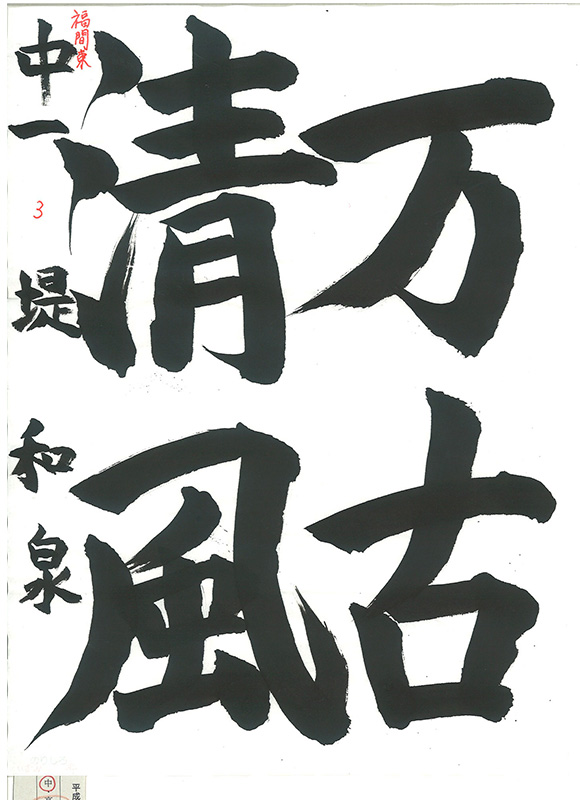 万古
清風
中一 堤 和泉
福間東
3
中
平成